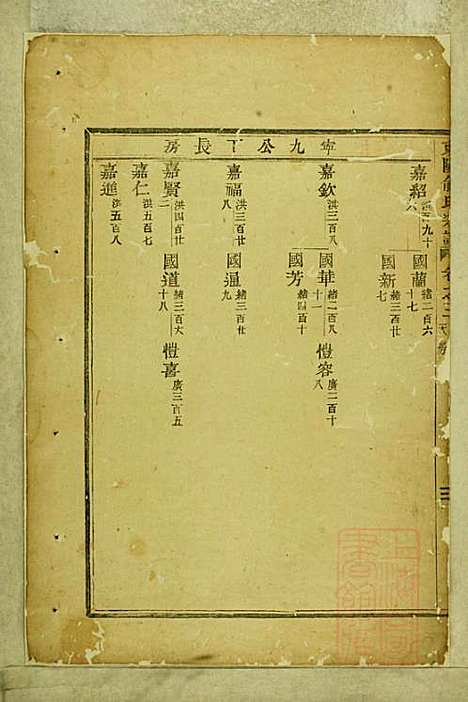 寧九公丁長房
嘉紹
國蘭 緒二百六十七
國新 緒三百廿七
嘉欽 洪三百八
國華 緒二百八十一
愷容 廣二百十八
國芳 緒四百十
嘉福 洪三百廿八
國逼 緒二百廿九
嘉賢 洪四百廿二
國道 緒三百六十八
愷喜 廣三百五
嘉仁 洪五百七
嘉進 洪五百八